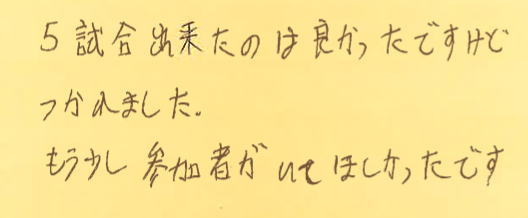 5試合出来たのは良かったですけど
つかれました.
もう少し参加者がいてほしかったです